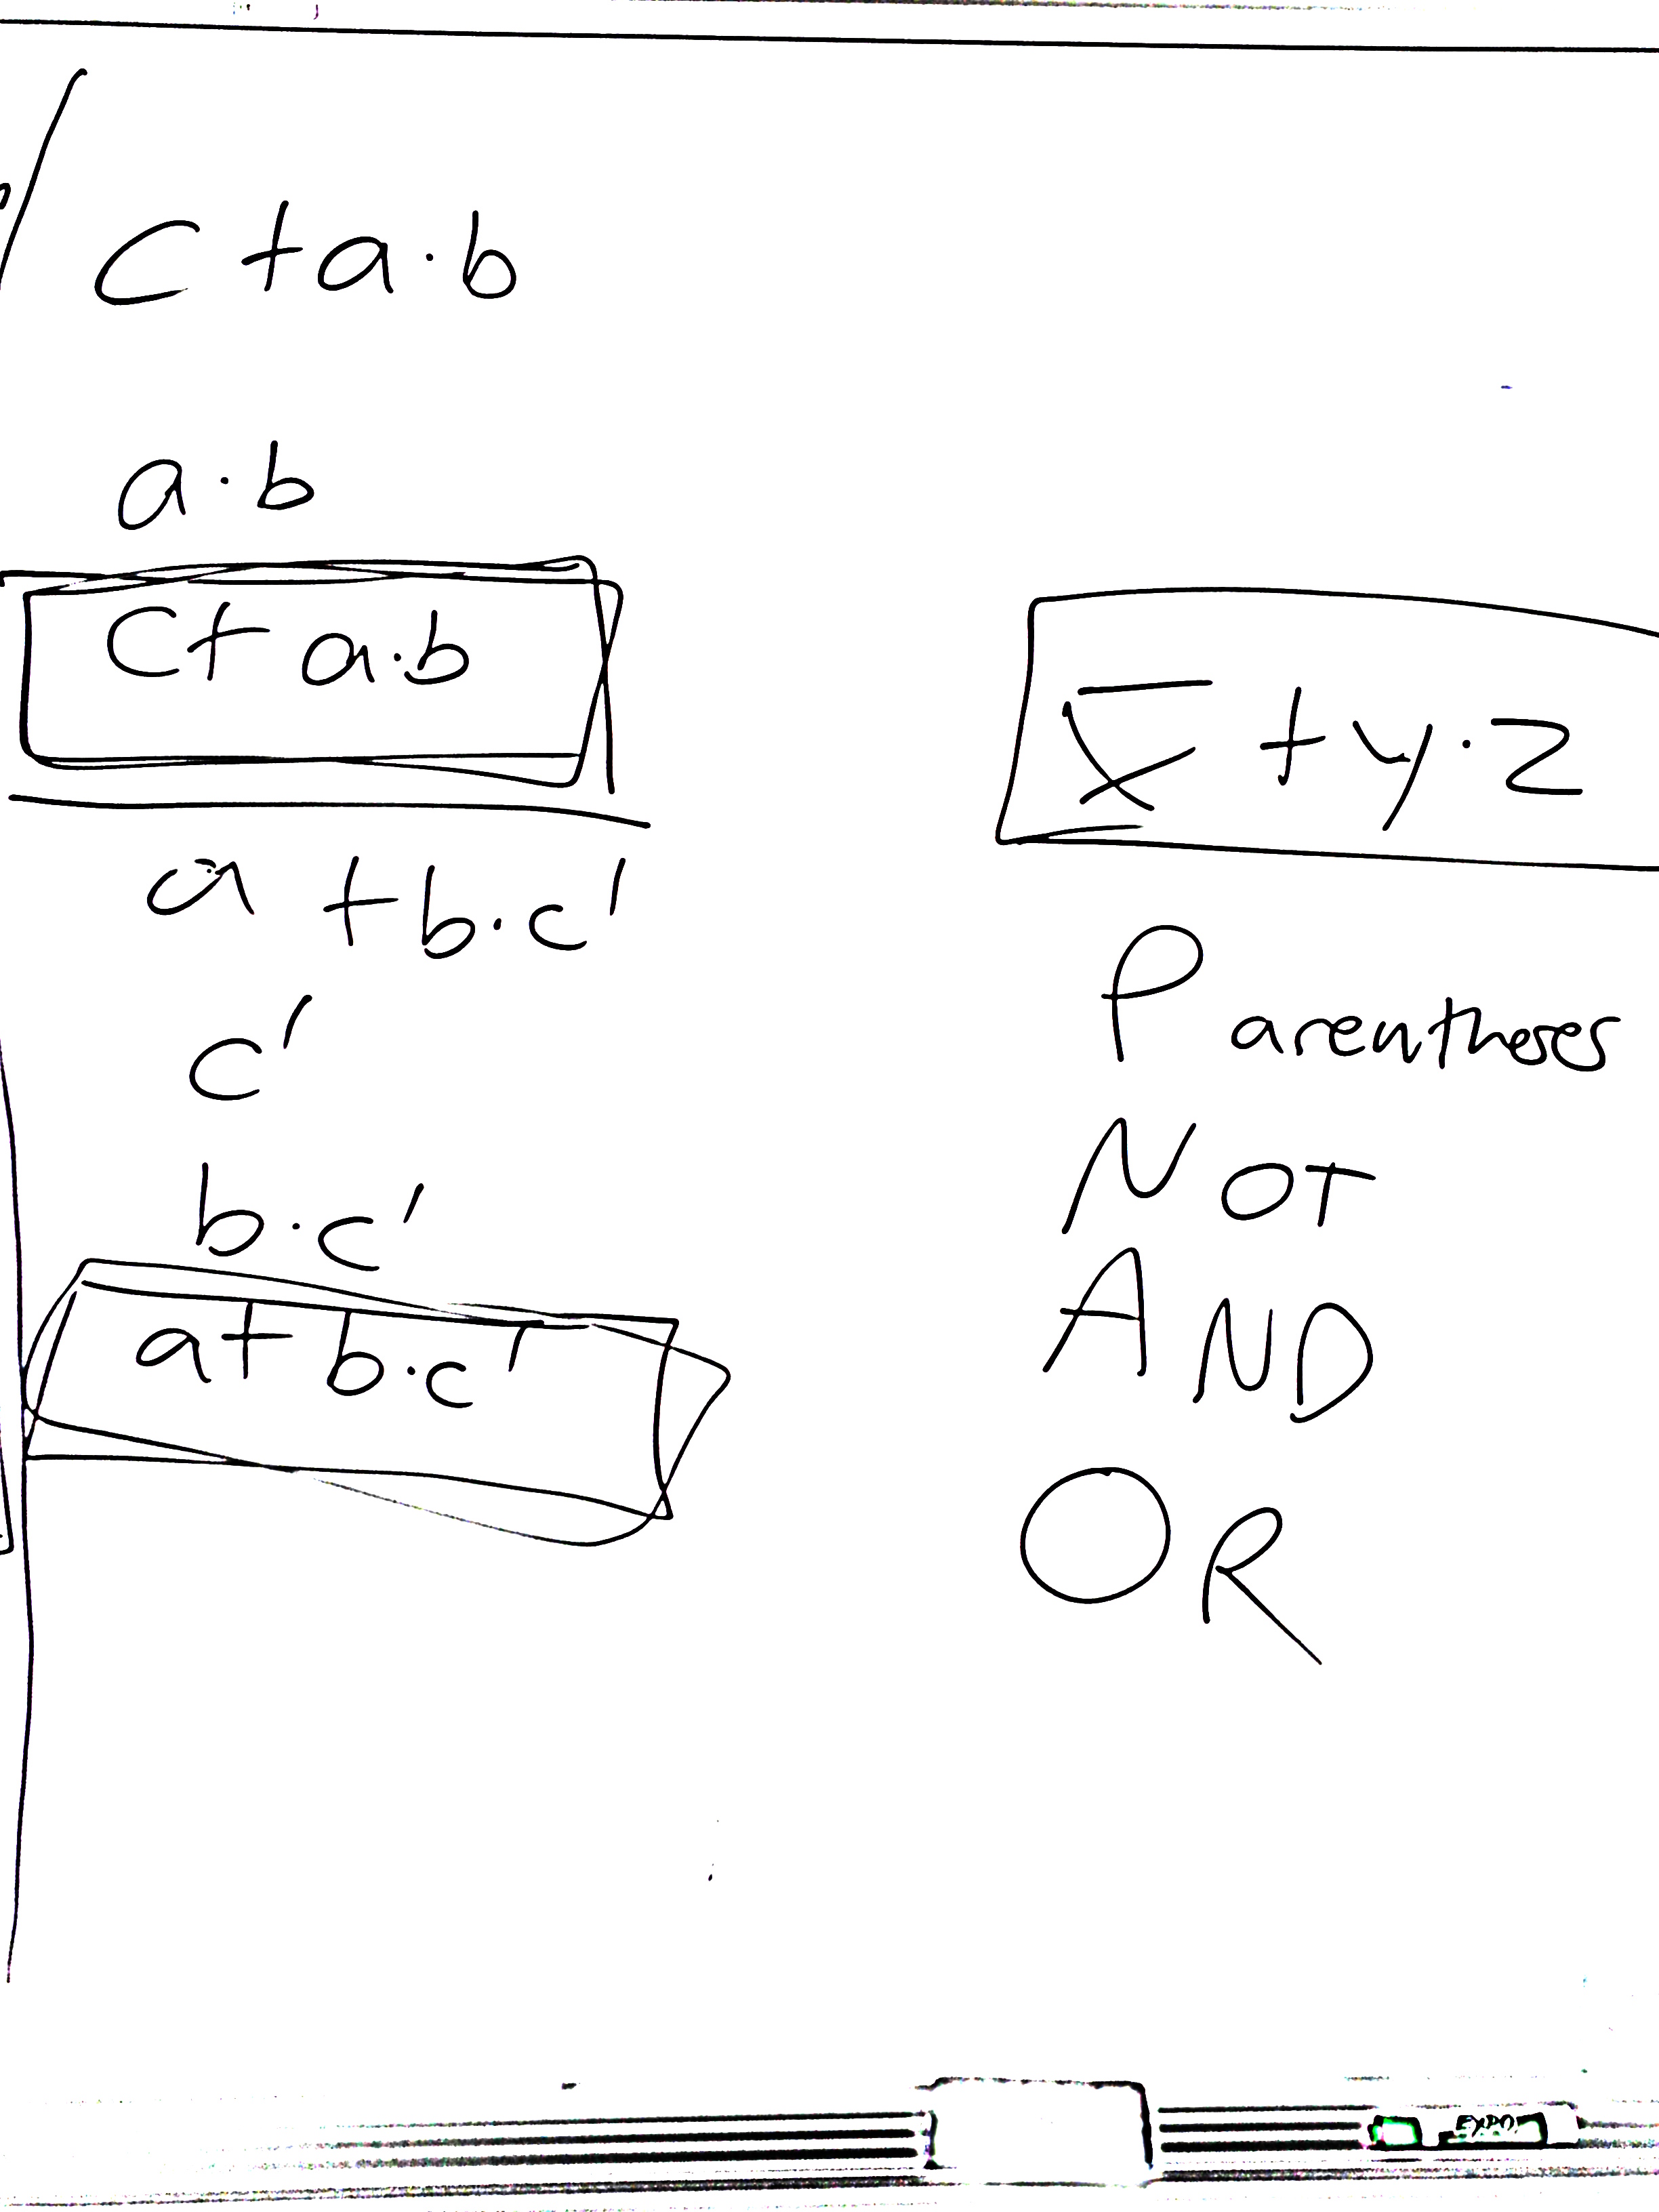 c + a·b
a·b
c + a·b
a + b·c'
c'
b·c'
a + b·c'
x̅ + y·z
Parentheses
NOT
AND
OR
EXPO